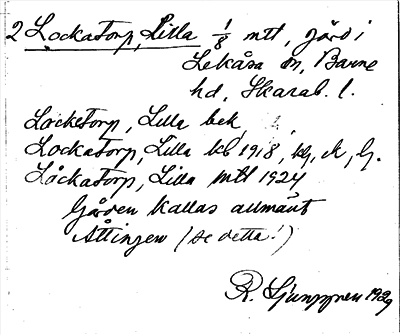 2 Lockatorp, Lilla 1/8 mtl, gård i
Lekåsa sn, Barne
hd, Skarab. l.
Locketorp, Lilla bek,
Lockatorp, Lilla kb 1918,
Lockatorp, Lilla mtl 1924
Gården kallas allmänt
Åttingen (se detta!)
R. Ljunggren 1929